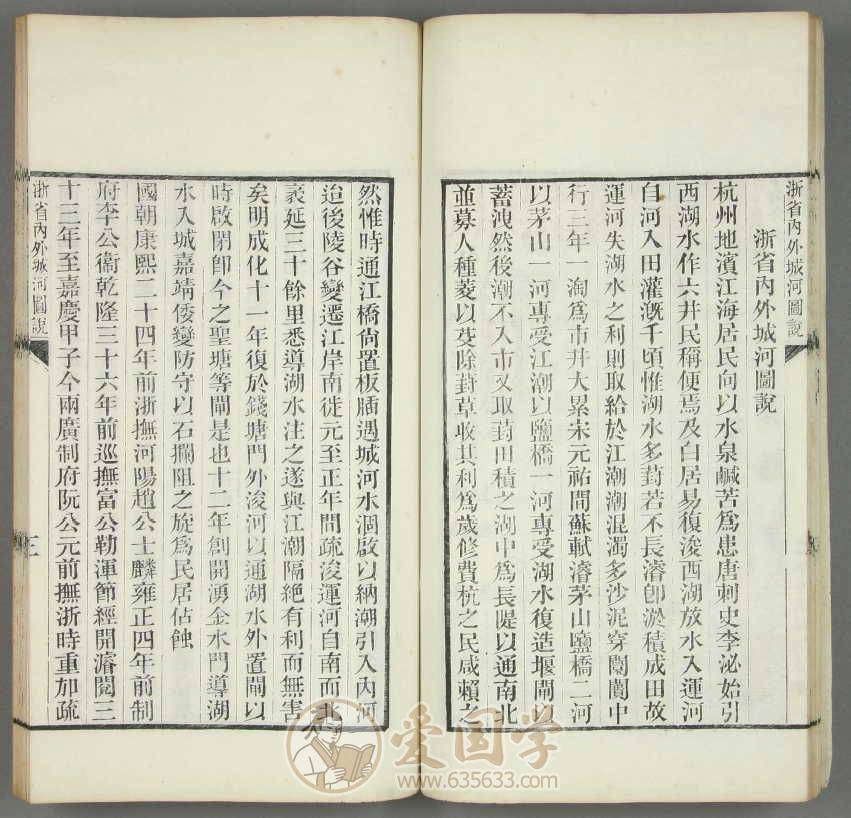 浙省內外城河圖說
浙省內外城河圖說
杭州地濱江海居民向以水泉鹹苦為患唐刺史李泌始引
西湖水作六井民稱便焉及白居易復浚西湖放水入運河
自河入田灌漑千頃惟湖水多葑若不長濬卽淤積成田故
運河失湖水之利則取給於江潮潮混濁多沙泥穿闤闠中
行三年一淘為市井大累宋元祐間蘇軾濬茅山鹽橋二河
以茅山一河專受江潮以鹽橋一河專受湖水復造堰閘以
蓄洩然後潮不入市又取葑田積之湖中為長隄以通南北
並募人種菱以芟除葑草收其利為歲修費杭之民咸賴之
然惟時通江橋尙置板牐遇城河水涸啟以納潮引入內河
迨後陵谷變遷江岸南徙元至正年間疏浚運河自南而北
袤延三十餘里悉導湖水注之遂與江潮隔絶有利而無害
矣明成化十一年復於錢塘門外浚河以通湖水外置閘以
時啟閉卽今之聖塘等閘是也十二年創開湧金水門導湖
水入城嘉靖倭變防守以石攔阻之旋為民居佔蝕
國朝康熙二十四年前浙撫河陽趙公士麟雍正四年前制
府李公衞乾隆三十六年前巡撫富公勒渾節經開濬閱三
十二年至嘉慶甲子今兩廣制府阮公元前撫浙時重加疏
浙省內外城河圖說
三
爱国学
www.635633.com